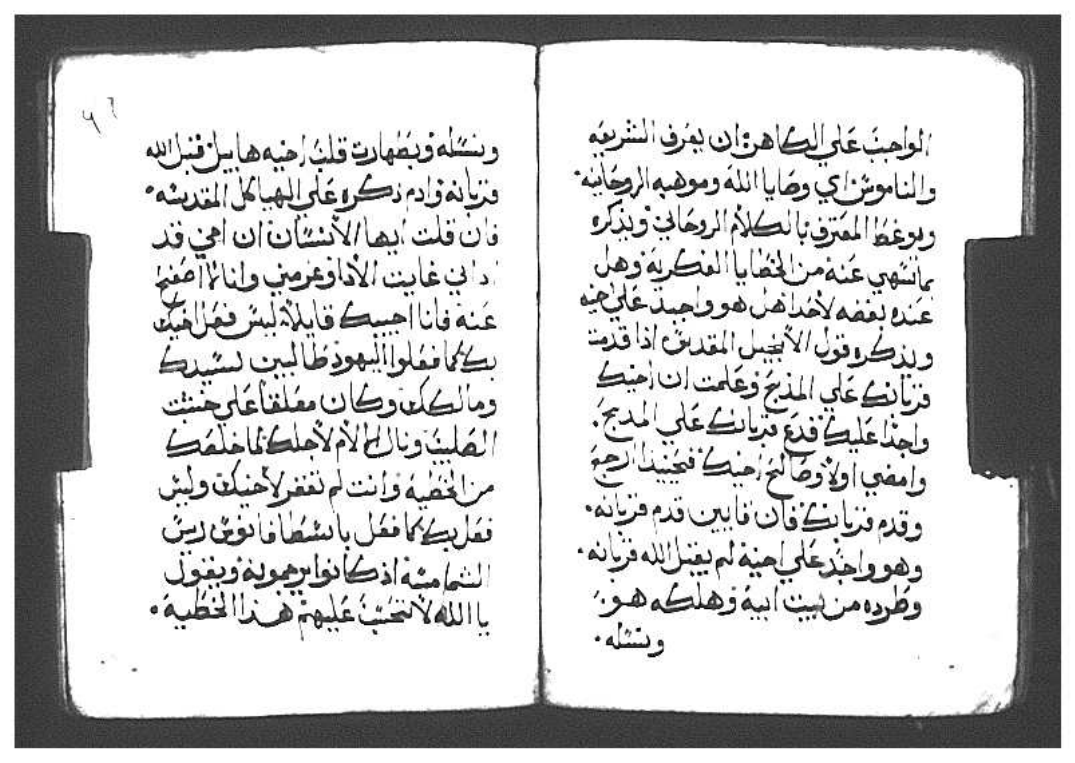 الواجب علي الكاهن ان يعرف الشريعه
والناموس اي وصايا الله وموهبه الروحانيه٠
ويوعظ المعترف بالكلام الروحاني ويذكره
بما تنهي عنه من الخطايا الفكريه وهل
عنده بغضه لاحدا هل هو واجد علي اخيه
ويذكره قول الانجيل المقدس اذا قدمت
قربانك علي المذبح وعلمت ان اخيك
واجدا عليك فدع قربانك علي المذبح٠
وامضي اولا وصالح اخيك فحينيذا ارجع
وقدم قربانك فان قايين قدم قربانه٠
وهو واجد علي اخيه لم يقبل الله قربانه٠
وطرده من بيت ابيه وهلكه هو٠
ونسله٠
٩٦
ونسله وبطهارت قلب اخيه هابيل قبل الله
قربانه وادم ذكره علي الهياكل المقدسه٠
فان قلت ايها الانسان ان اخي قد
اداني غايت الادا وغرمني وانا لا اصفح
عنه فانا اجيبك قايلا ليس فعل اخيك
بك كما فعلوا اليهود طالبين لسيدك
ومالكك وكان معلقا علي خشبت
الصليب ونال الالام لاجلك لما خلصك
من الخطيه وانت لم تغفر لاخيك وليس
فعل بك كما فعل باسطافانوس ريس
الشمامسه اذ كانوا يرجمونه ويقول
يا الله لا تحسب عليهم هذا الخطيه٠